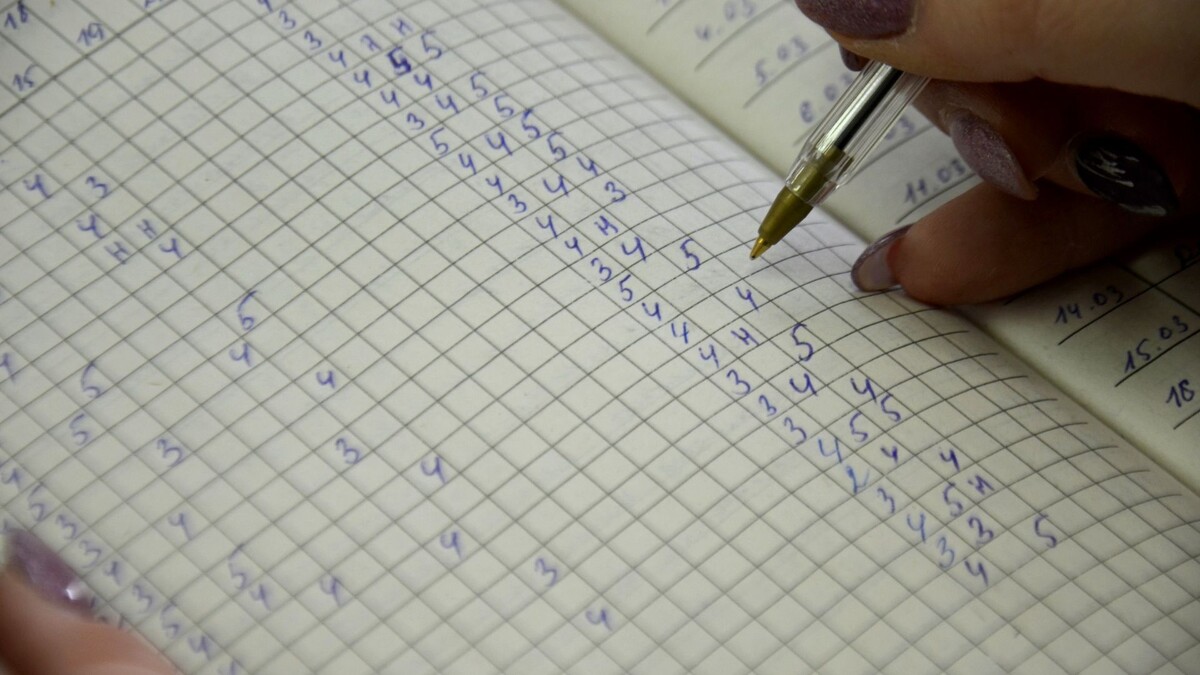 18
19
15
4 3
4 н
н 4
5
4
4
5
5
3
3
4
4
5
4
4
4
3
4
3
3
4 н н
4 5 5
4 4
3 4 5
5 5
4 4 5
4 5
3 4 4
4 3
4 н
3 4
5 5
4
4 4
4 н
3 5
3 4
3 4
4 5 5
2 4
3 4
4 5 н
3 3
4 5
4.03
5.03
11.03
14.03
15.03